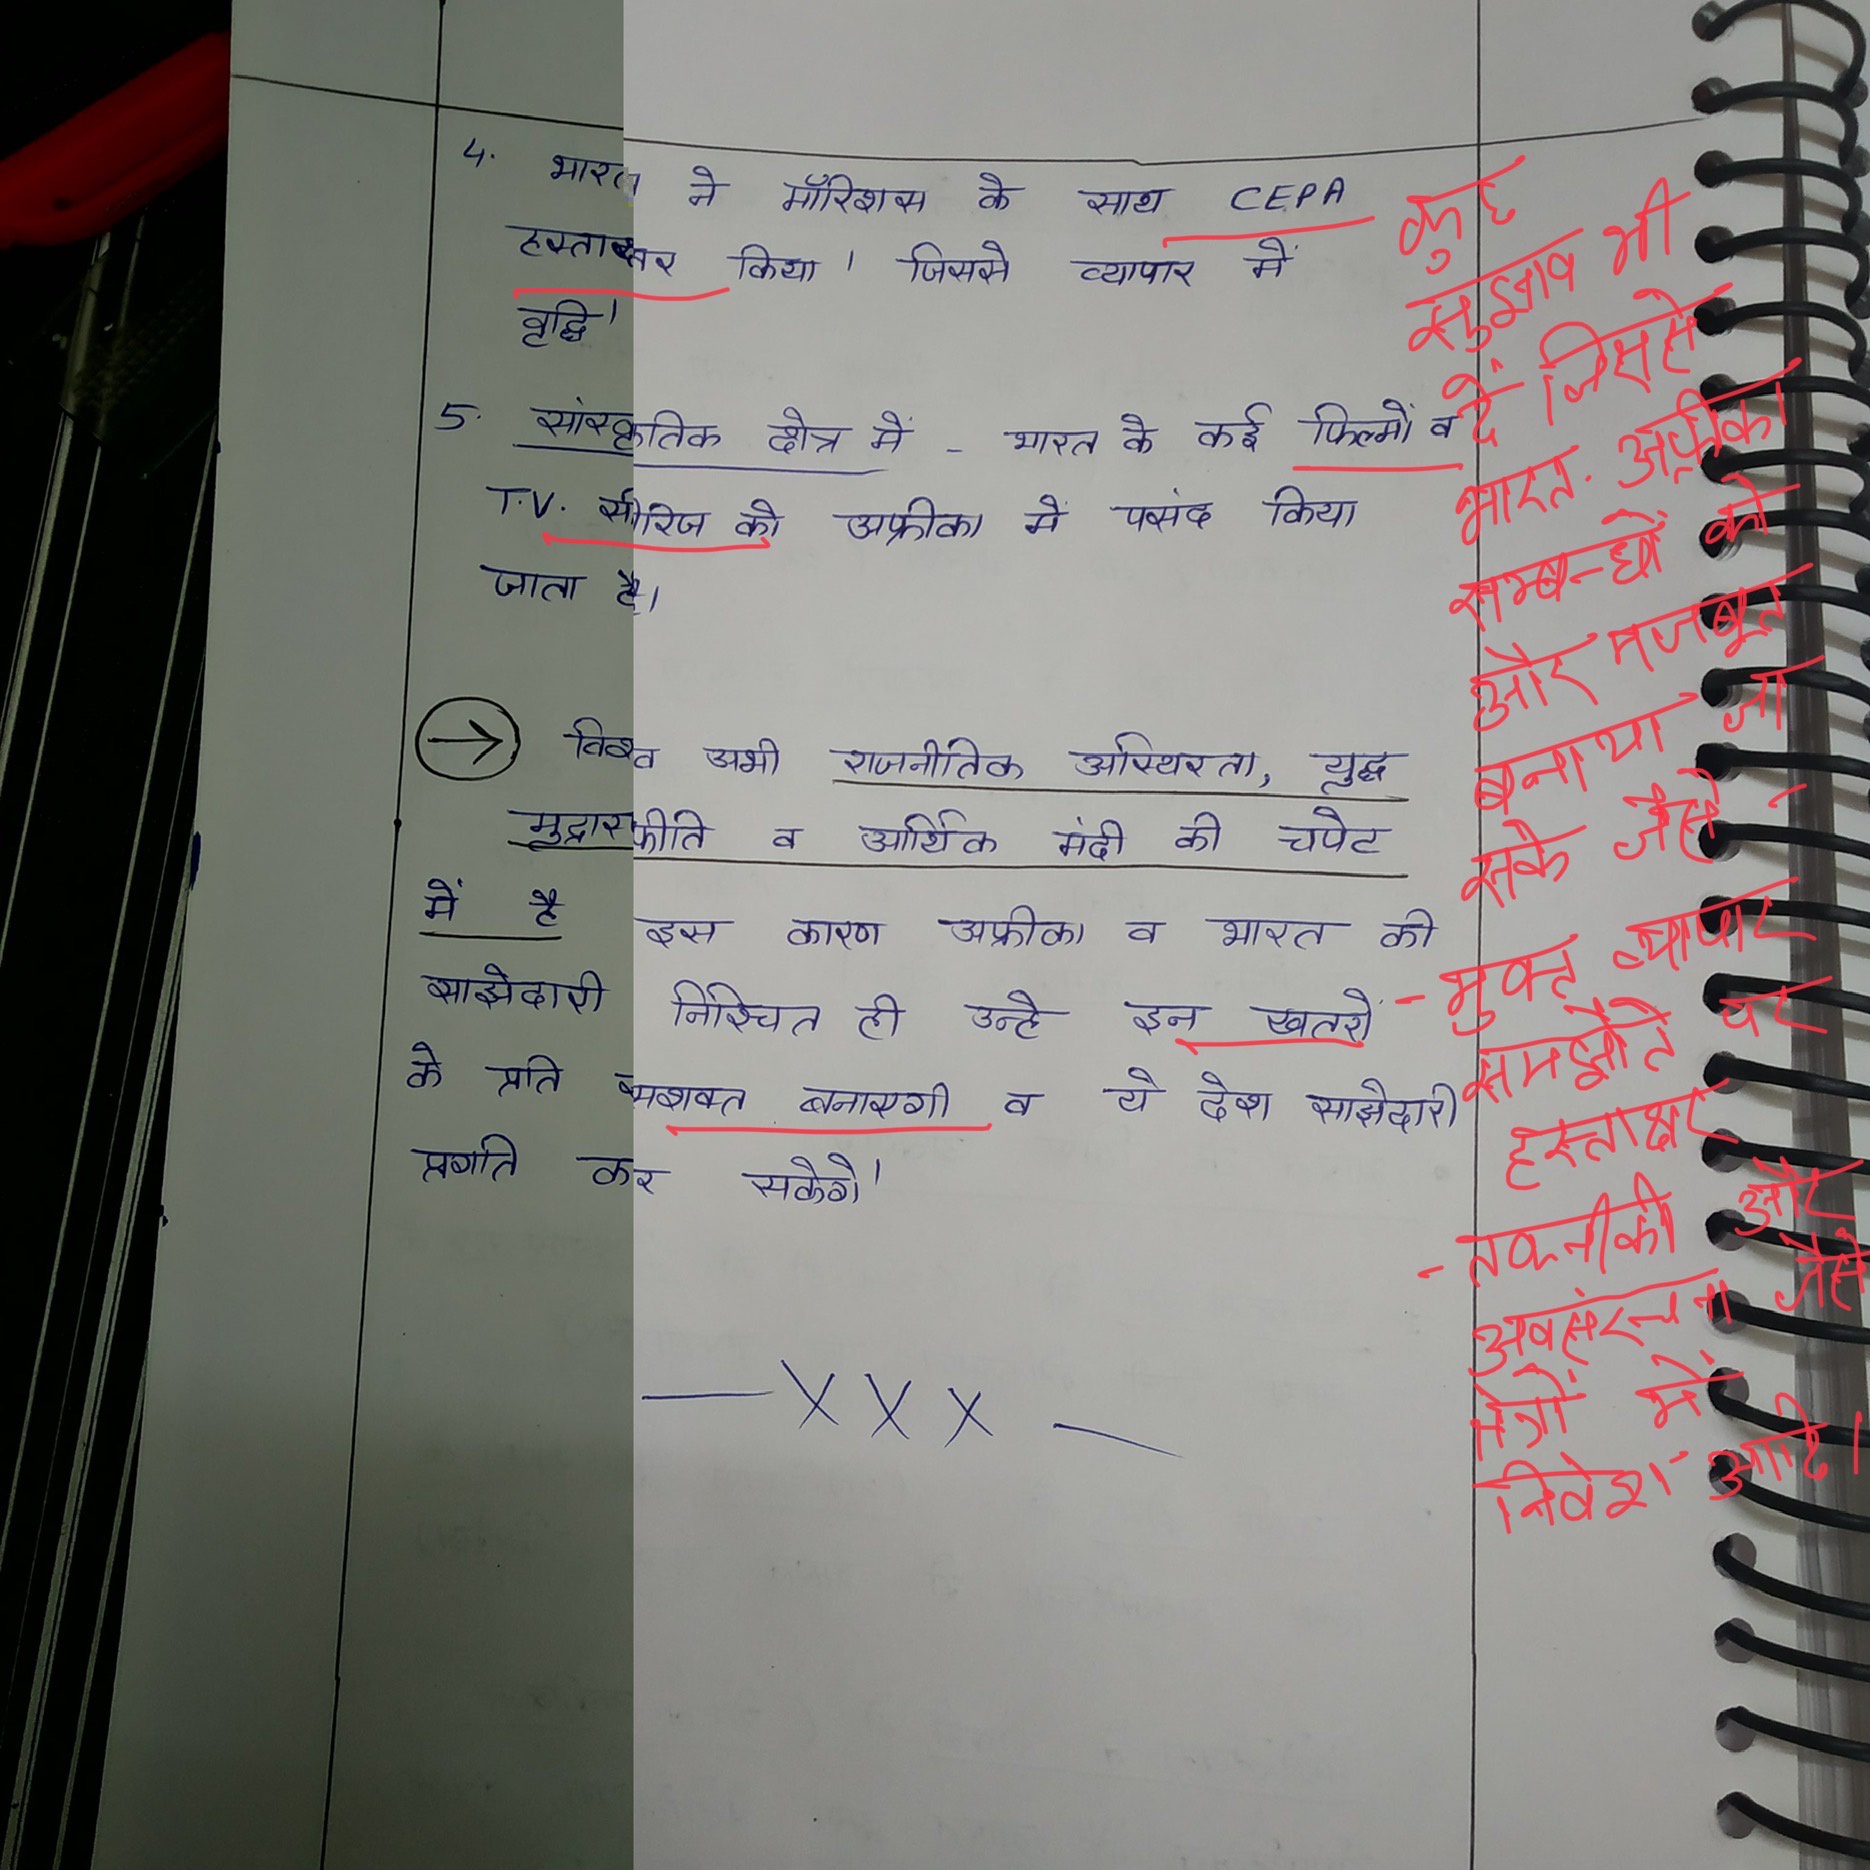 4. भारत ने मॉरिशस के साथ CEPA
हस्ताक्षर किया। जिससे व्यापार में
वृद्धि।
5. सांस्कृतिक क्षेत्र में - भारत के कई फिल्मों व
T.V. सीरिज को अफ्रीका में पसंद किया
जाता है।
→ विश्व अभी राजनीतिक अस्थिरता, युद्ध
मुद्रास्फीति व आर्थिक मंदी की चपेट
में है इस कारण अफ्रीका व भारत की
साझेदारी निश्चित ही उन्हे इन खतरो
के प्रति सशक्त बनाएगी व ये देश साझेदारी
प्रगति कर सकेगे।
— X X X —
कुछ
सुझाव भी
दें जिससे
भारत-अफ्रीका
सम्बन्धों को
और मजबूत
बनाया जा
सके जैसे -
- मुक्त व्यापार
समझौते पर
हस्ताक्षर
- तकनीकी और
अवसंरचना जैसे
क्षेत्रों में
निवेश आदि।